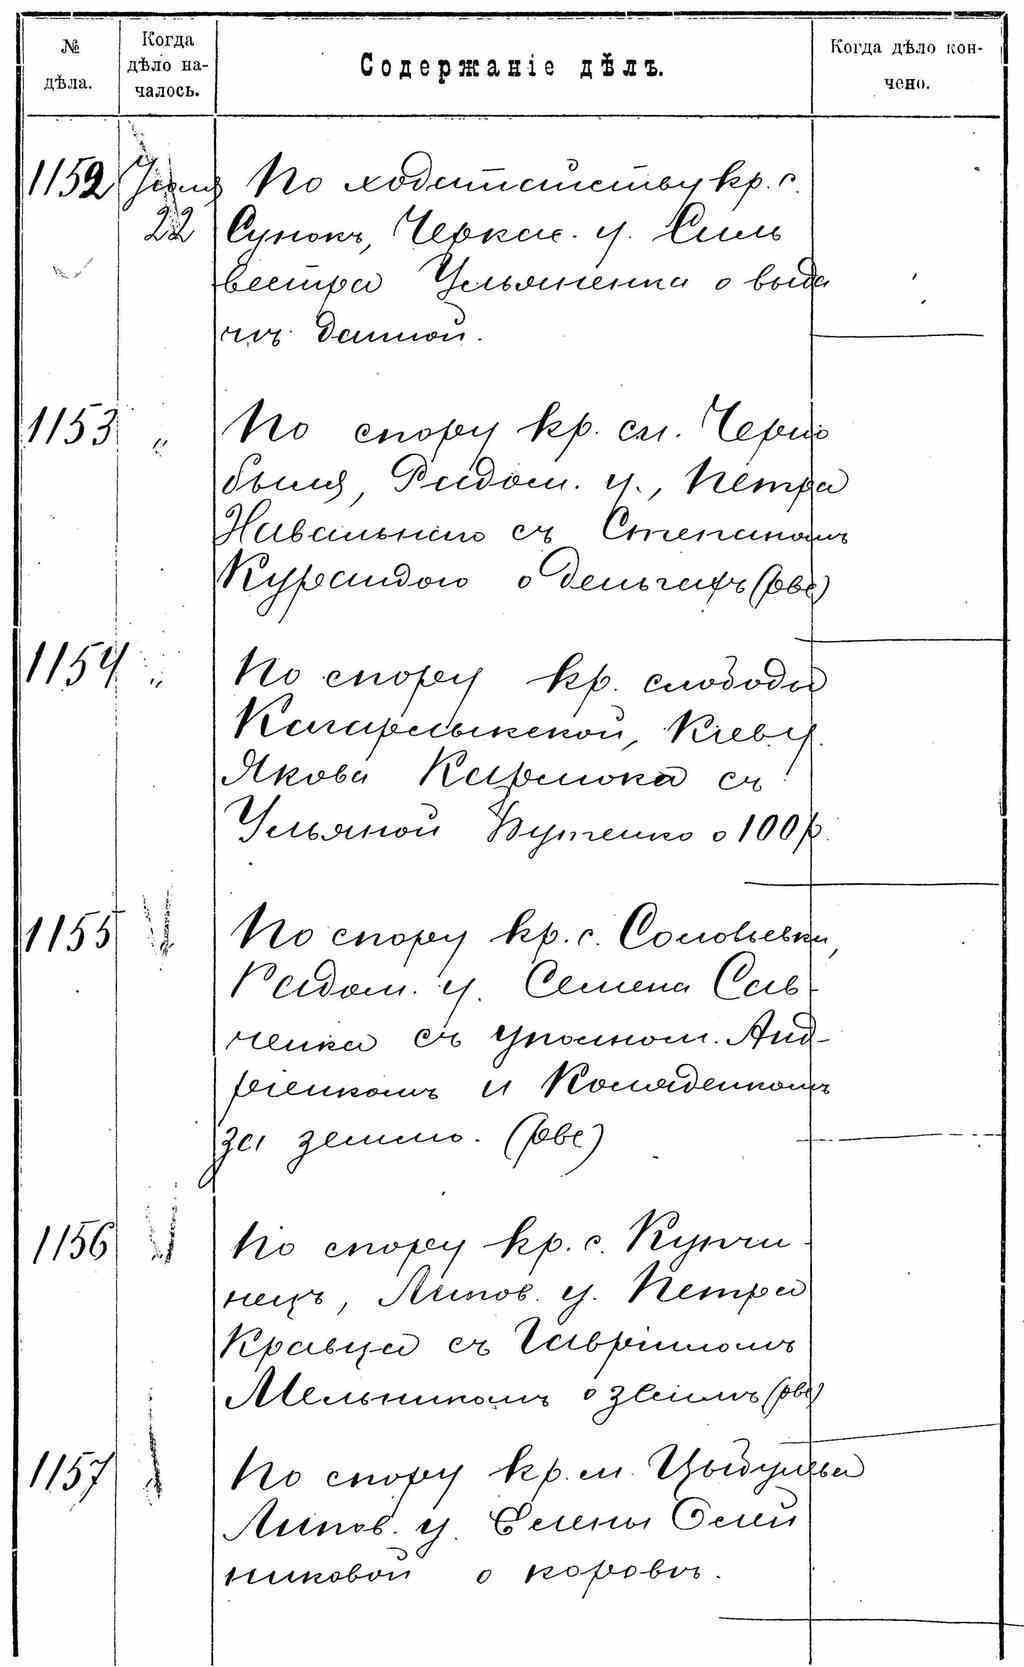 № дѣла.
Когда дѣло на-
чалось.
Содержаніе дѣлъ.
Когда дѣло кон-
чено.
1152 По ходатайству кр. с.
22 Сунокъ, Черкас. у. Силь
вестра Ульяненка о выда
чѣ данной.
1153 " По спору кр. м. Черно
быля, Радом. у., Петра
Навальнаго съ Степаномъ
Курандою о деньгахъ (рвс)
1154 " По спору кр. слободы
Кагарлыкской, Кіев у.
Якова Карлюка съ
Ульяной Бутенко о 100 р.
1155 По спору кр. с. Соловьевки,
Радом. у. Семена Сав-
ченка съ уполном. Анд-
ріенкомъ и Коляденкомъ
за землю. (рвс)
1156 По спору кр. с. Купчи-
нецъ, Липов. у. Петра
Кравца съ Гавріиломъ
Мельникомъ о землѣ (рвс)
1157 По спору кр. м. Цыбулева
Липов. у. Елены Олей
никовой о коровѣ.